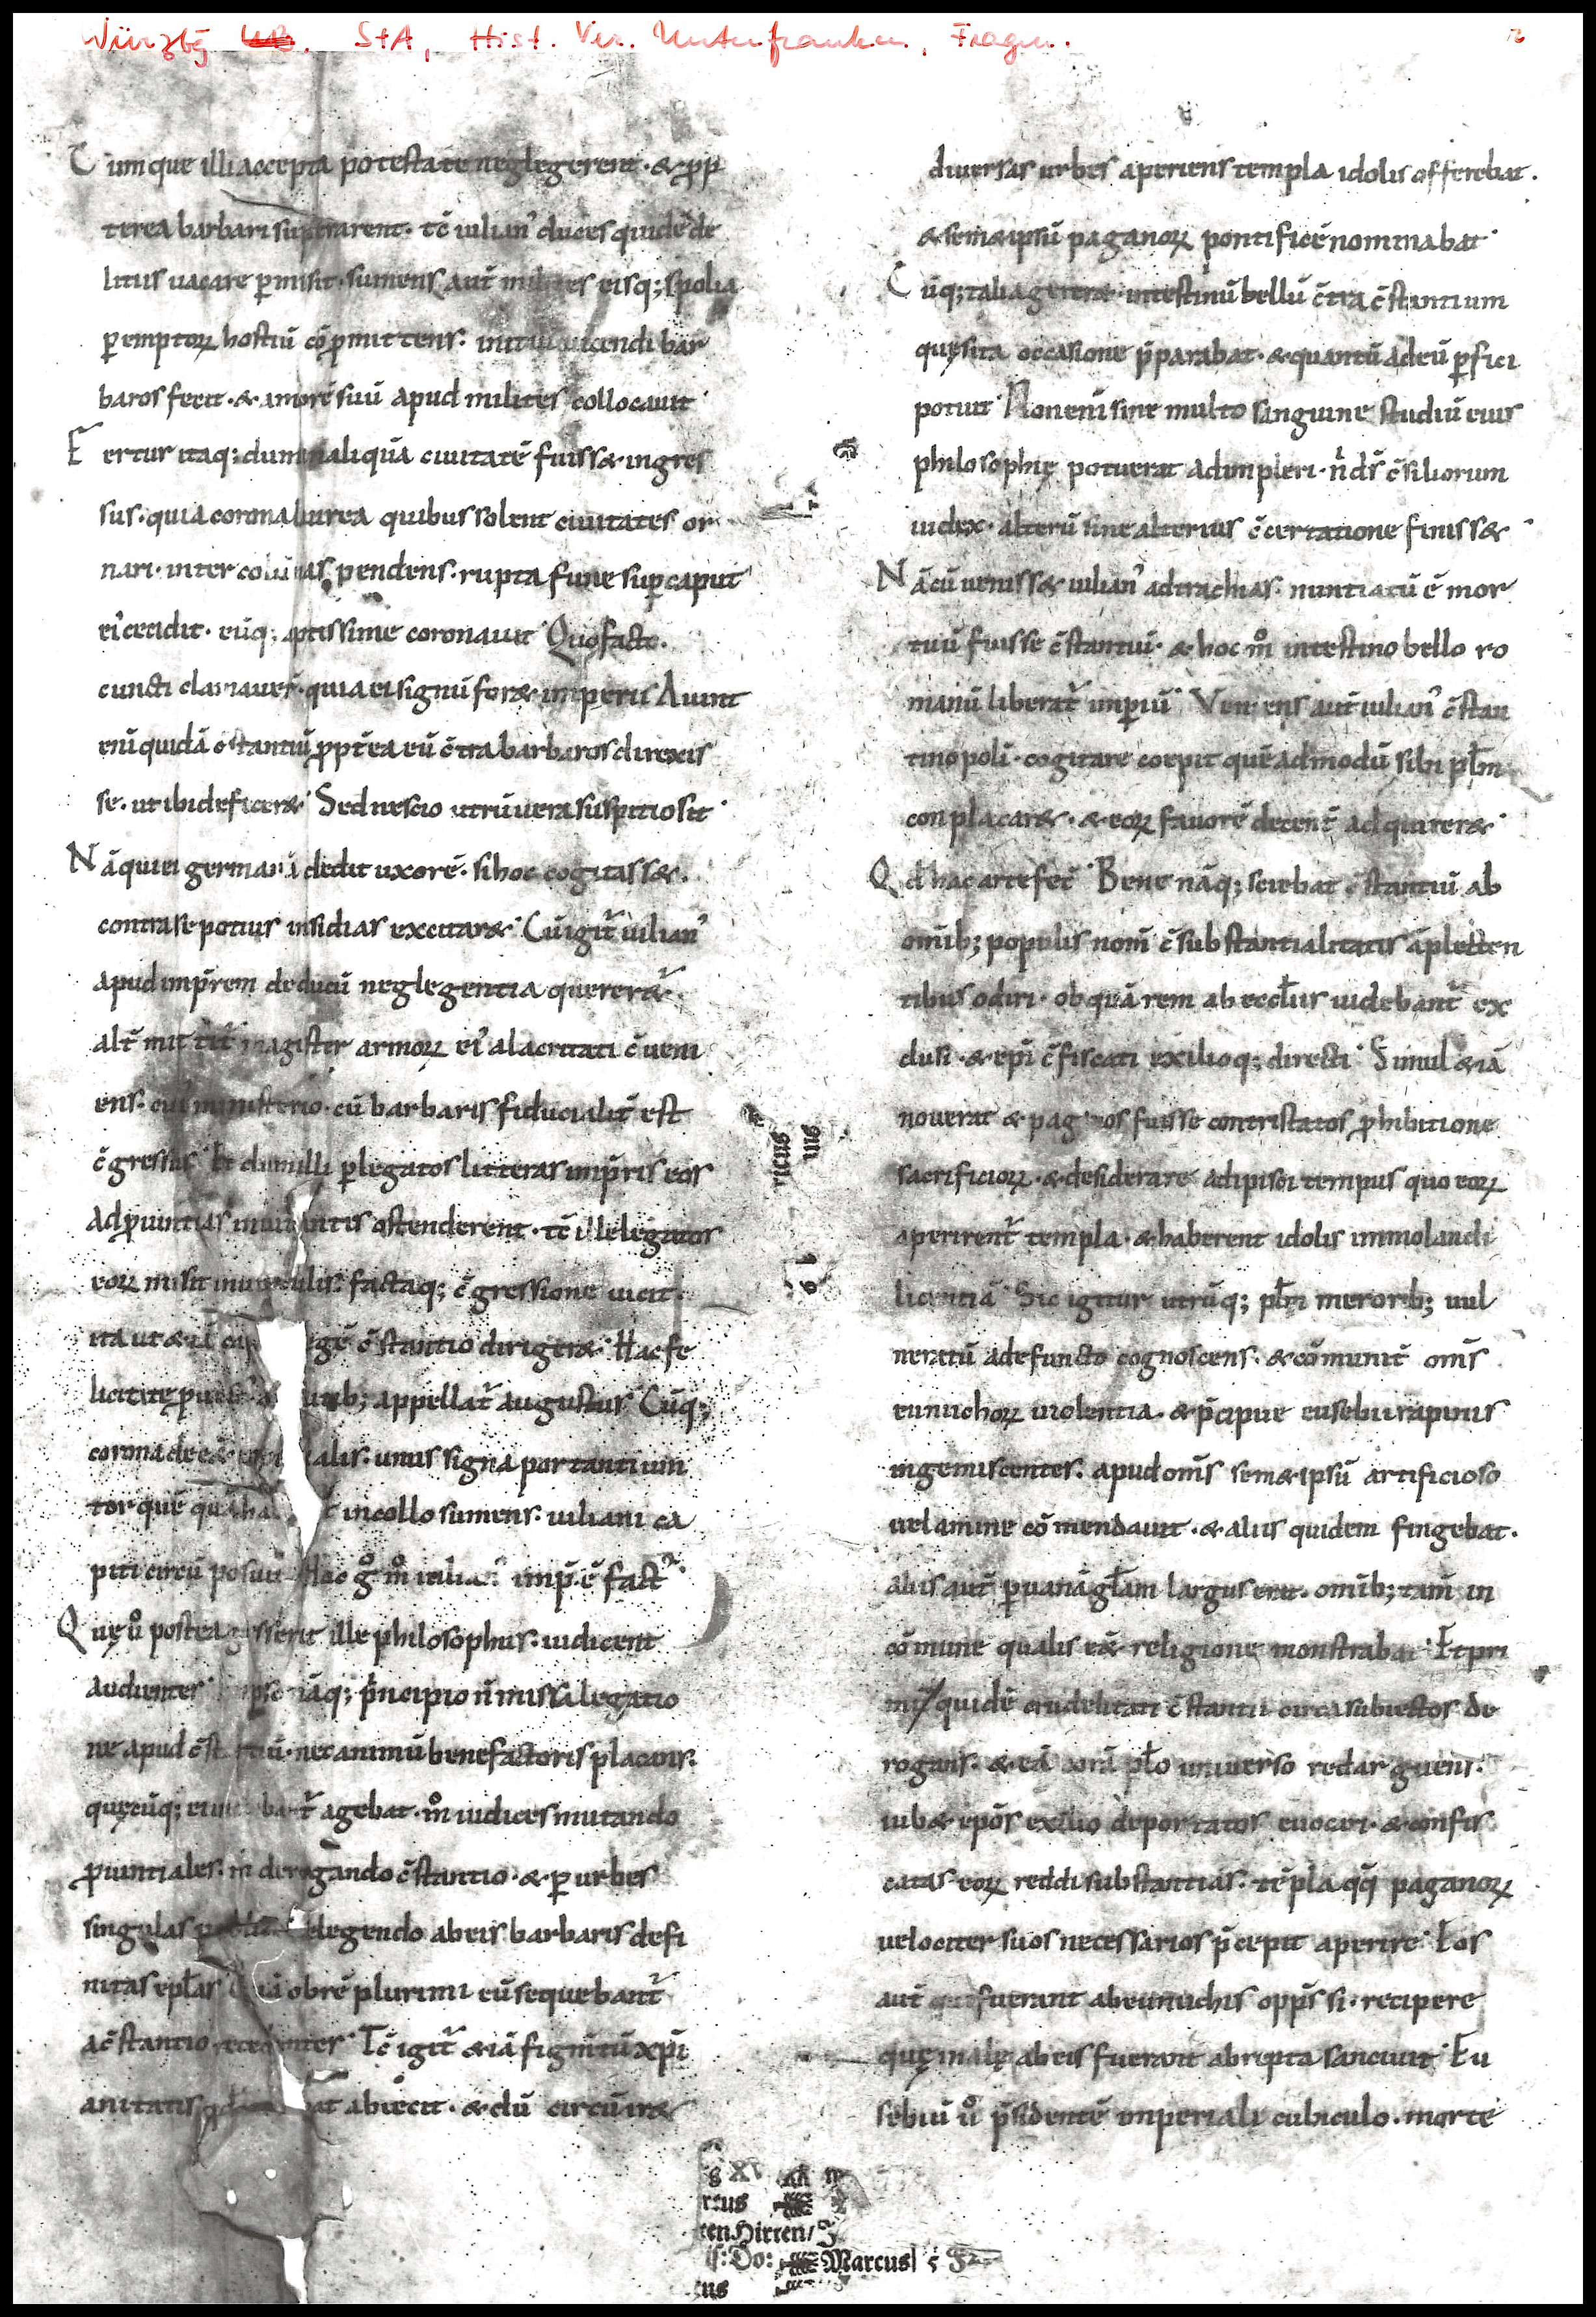 Würzbg UB. StA, Hist. Ver. Unterfranken, Fragm.
Cumque illi accepta potestate neglegerent · & ꝓp
terea barbari suꝑarent · tc̄ iulian᾽ duces quidē de
litus uacare ꝑmisit · sumens aut̄ milites eisq; spolia
ꝑemptoꝝ hostiū cōpmittens · initiū uicendi bar
baros fecit · & amorē suū apud milites collocauit ·
Fertur itaq; dum in aliquā ciuitatē fuiss& ingres
sus · quia corona laurea quibus solent ciuitates or
nari · inter colūnas pendens · rupta fune suꝑ caput
ei᾽ cecidit · eūq; aptissime coronauit · Quo facto ·
cuncti clamauer̄ · quia ei signū for& imperii Aiunt
enī quidā c̄stantiū ꝓpt̄ea eū c̄tra barbaros direxis
se · ut ibi deficer& · Sed nescio utrū uera suspitio sit ·
Nā qui ei germanā dedit uxorē · si hoc cogitass& ·
contra se potius insidias excitar& · Cū igit̄ iulian᾽
apud imp̄rem de ducū neglegentia querer&̄ ·
alt̄ mittit̄ magister armoꝝ ei᾽ alacritati c̄ueni
ens · cui᾽ ministerio · cū barbaris fiducialit̄ est
c̄gressus · Et dum illi ꝑ legatos litteras imp̄ris eos
ad ꝓuintias inuitantis ostenderent · tc̄ ille legatos
eoꝝ misit in uinculis · factaq; c̄gressione uicit ·
ita ut &iā gē c̄stantio diriger& · Hac fe
licitate ꝓue uitib; appellat̄ augustus · Cūq;
corona dee& alis · unus signa portantium
torquē quā in collo sumens · iuliani ca
piti circū posuit · Hoc g̊ m̊ iulian᾽ imp̄ · ē fact᾽ ·
Quę ů postea gesserit ille philosophus · iudicent
audientes · ipso nāq; p̄ncipio n̄ missa legatio
ne apud c̄stantiū · nec animū benefactoris placans ·
quęcūq; eı bant̄ agebat · m̊ iudices mutando
ꝓuintiales · m̊ derogando c̄stantio · & ꝑ urbes
singulas legendo ab eis barbaris defi
nitas epłas · ob rē plurimi eū sequebant̄
a c̄stantio recedentes · Tc̄ igit̄ &iā figmtū xp̄i
anitatis bat abiecit · & dū circūir&
diuersas urbes aperiens templa idolis offerebat ·
& sem&ipsū paganoꝝ pontificē nominabat ·
Cūq; talia ager&̄ · intestinū bellū c̄tra c̄stantium
quęsita occasione p̄parabat · & quantū ad eū ꝑfici
potuit · Non enī sine multo sanguine studiū eius
philosophię potuerat adimpleri · n̂ d̄s c̄siliorum
iudex · alterū sine alterius c̄certatione finiss& ·
Nā cū ueniss& iulian᾽ ad trachias · nuntiatū ē mor
tuū fuisse c̄stantiū · & hoc m̊ intestino bello ro
manū liberat̄ imꝑiū · Veniens aut̄ iulian᾽ c̄stan
tinopoli · cogitare coepit quēadmodū sibi płm
conplacar& · & eoꝝ fauorē decent̄ adquirer& ·
Qd hac arte fec̄ · Bene nāq; sciebat c̄stantiū ab
omīb; populis nom̄ c̄substantialitatis āplecten
tibus odiri · ob quā rem ab eccłiis uidebant̄ ex
clusi · & epī c̄fiscati exilioq; directi · Simul &iā
nouerat & paganos fuisse contristatos ꝓhibitione
sacrificioꝝ · & desiderare adipisci tempus quo eoꝝ
aperirent̄ templa · & haberent idolis immolandi
licentiā · Sic igitur utrūq; płm merorib; uul
neratū a defuncto cognoscens · & cōmunit̄ om̄s
eunuchoꝝ uiolentia · & p̄cipue eusebii rapinis
ingemiscentes · apud om̄s sem&ipsū artificioso
uelamine cōmendauit · & aliis quidem fingebat ·
aliis aut̄ ꝑ uanā głam largus erat · omīb; tam̄ in
cōmune qualis e& religione monstrabat · Et pri
mū quidē crudelitati c̄stantii circa subiectos de
rogans · & eā corā pło uniuerso redarguens ·
iub& epōs exilio deportatos euocari · & confis
catas eoꝝ reddi substantias · tēpla qq̄ paganoꝝ
uelociter suos necessarios p̄cepit aperire · Eos
aut̄ qui fuerant ab eunuchis opp̄ssi · recipere
quę male ab eis fuerant abrepta sanciuit · Eu
sebiū ů p̄sidentē imperiali cubiculo · morte
ricus
nis
ten Hirten/ J
Do: Marcus